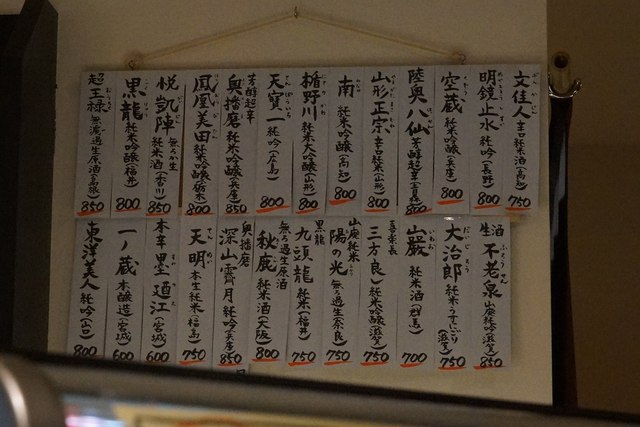 文佳人 辛口純米酒(高知) 750
明鏡止水 純吟(長野) 800
空蔵 純米吟醸(兵庫) 800
陸奥八仙 芳醇超辛(青森) 800
山形正宗 辛口純米(山形) 800
南 純米吟醸(高知) 800
楯野川 純米大吟醸(山形) 800
天寶一 純吟(広島) 800
芳醇超辛 奥播磨 純米吟醸(兵庫) 850
鳳凰美田 純米吟醸(栃木) 800
悦凱陣 無ろか生 純米酒(香川) 850
黒龍 純米吟醸(福井) 800
超王禄 無濾過生原酒(島根) 850
生酒 不老泉 山廃純吟(滋賀) 850
大治郎 純米うすにごり(滋賀) 750
山巌 純米酒(群馬) 700
喜楽長 三方良し 純米吟醸(滋賀) 750
山廃純米 陽の光 無ろ過生(奈良) 750
黒龍 九頭龍 純米(福井) 750
無ろ過生原酒 秋鹿 純米酒(大阪) 800
奥播磨 深山霽月 純吟(兵庫) 850
天明 本生純米(福島) 750
本辛 墨廼江(宮城) 600
一ノ蔵 本醸造(宮城) 600
東洋美人 純吟(山口) 800